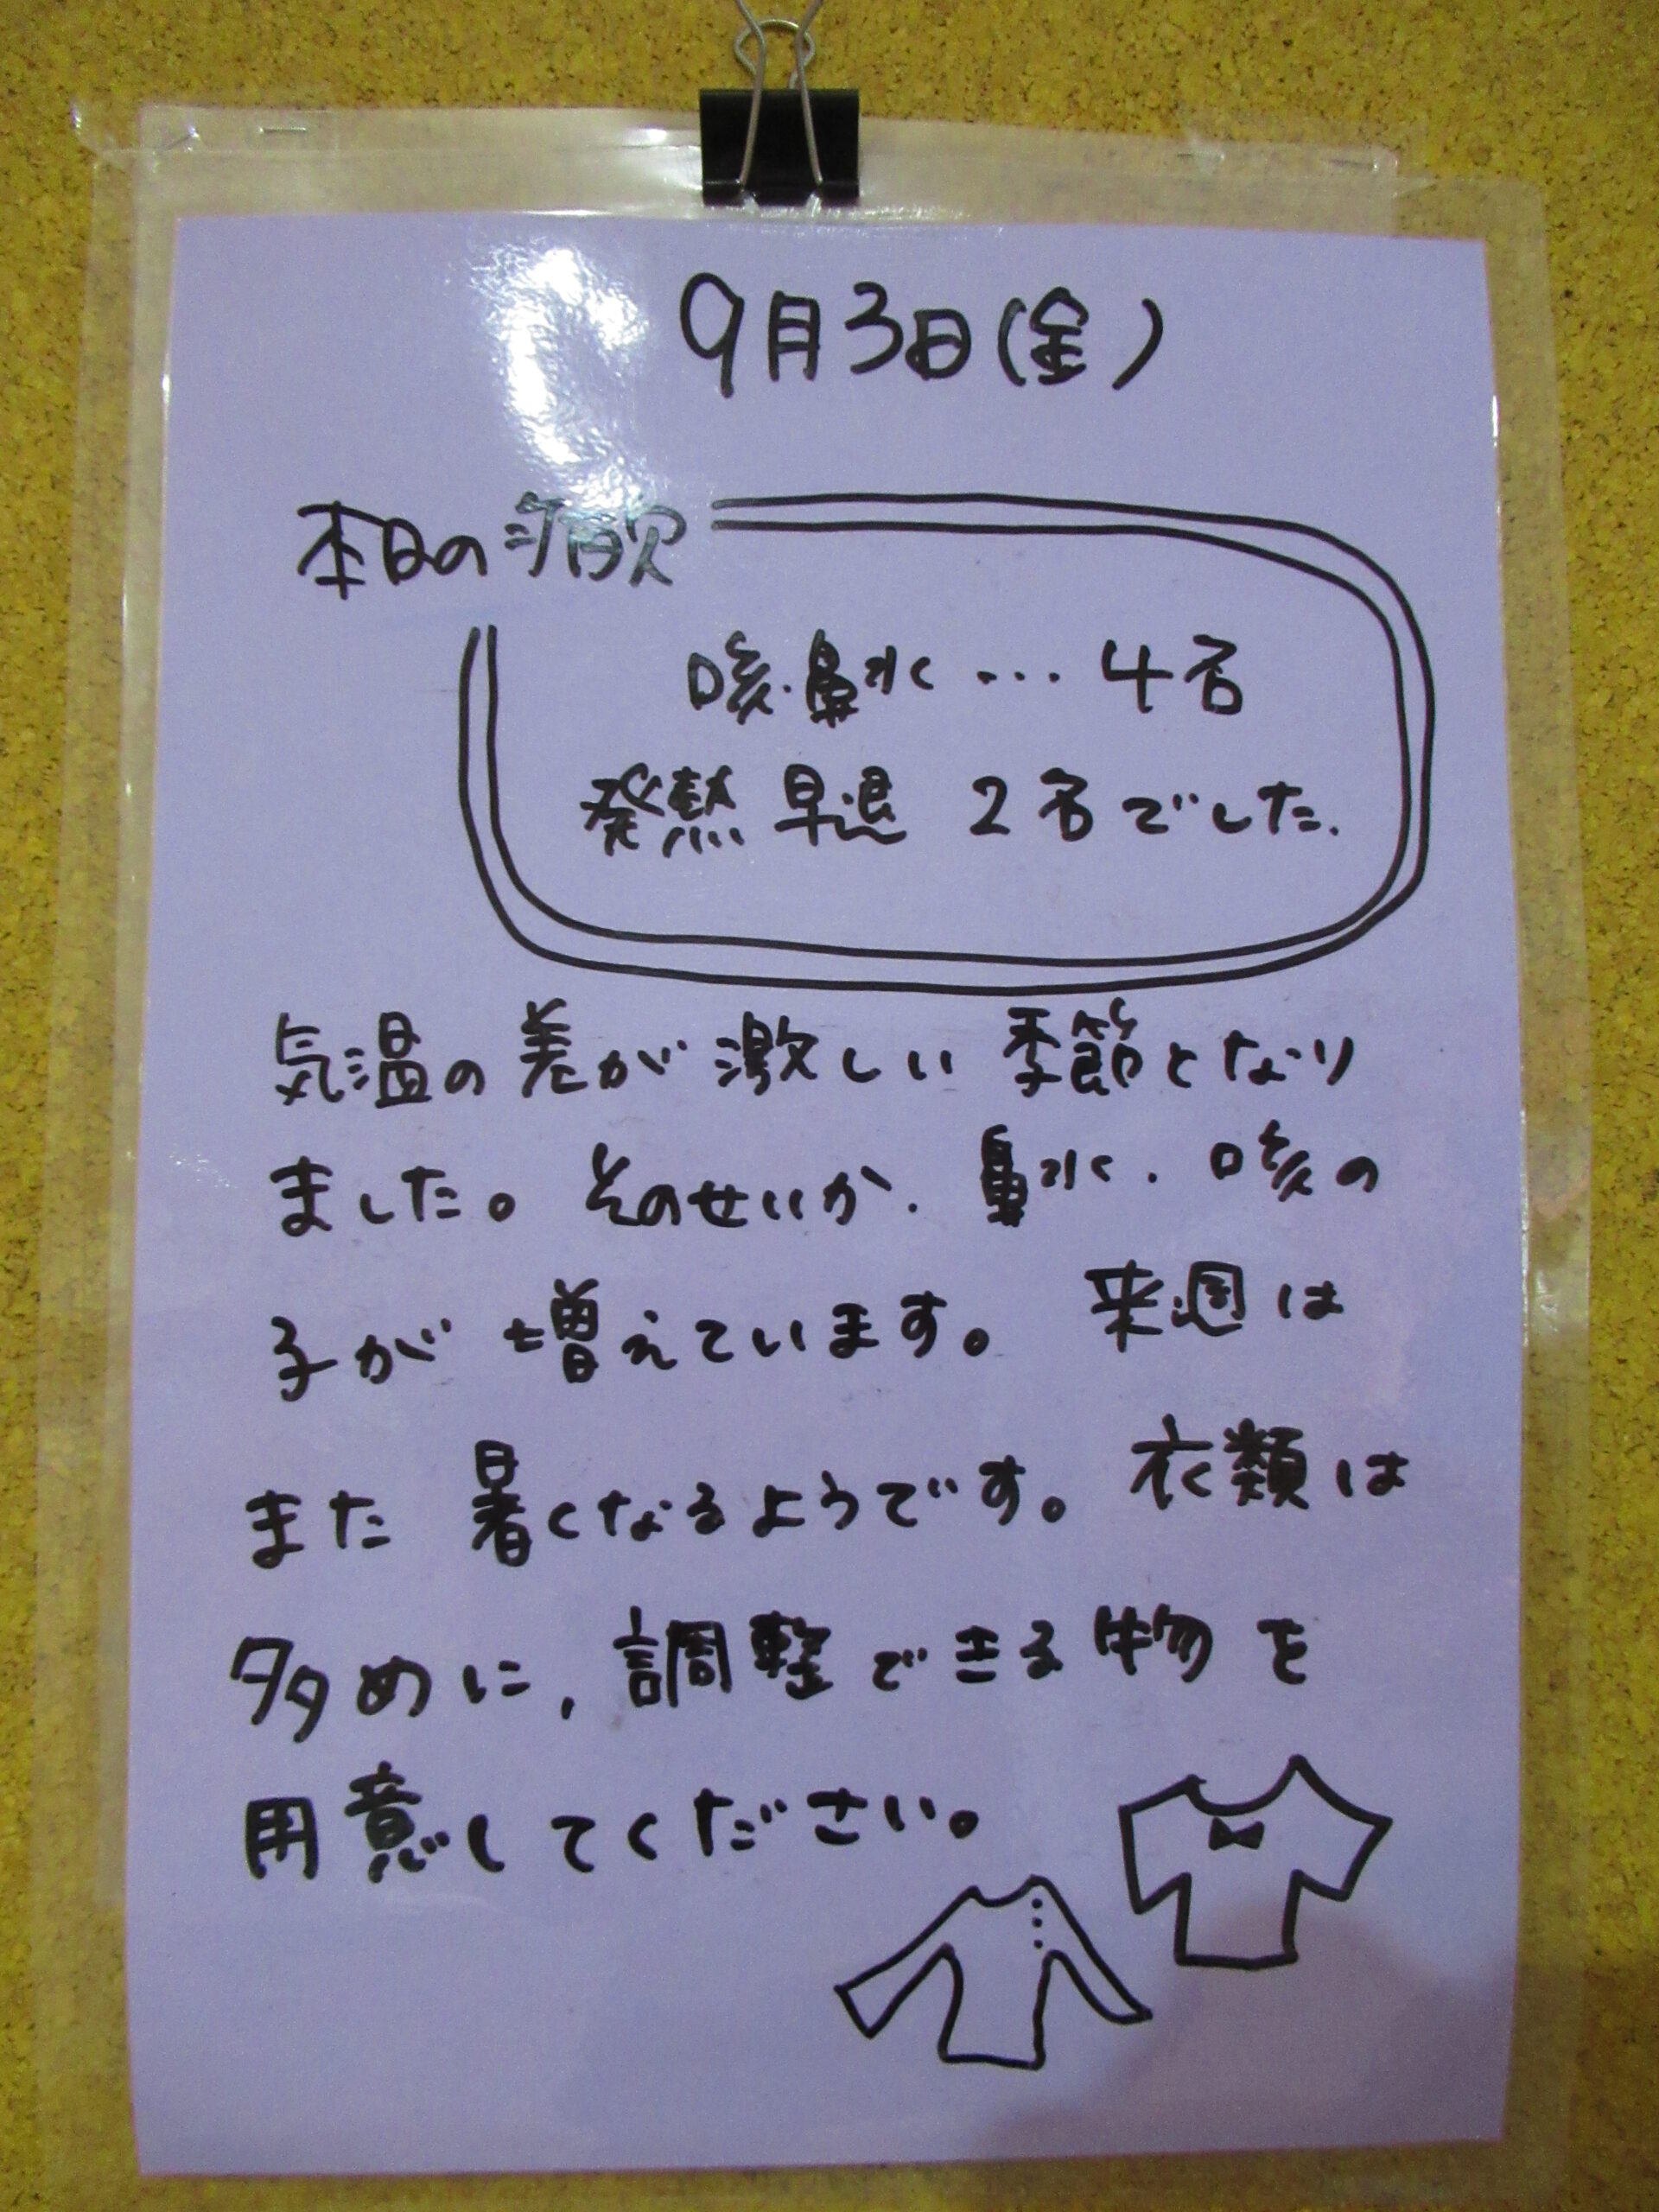 9月3日(金)
本日の病欠
咳・鼻水…4名
発熱 早退 2名でした.
気温の差が激しい季節となり
ました。そのせいか、鼻水・咳の
子が増えています。来週は
また暑くなるようです。衣類は
多めに、調整できる物を
用意してください。